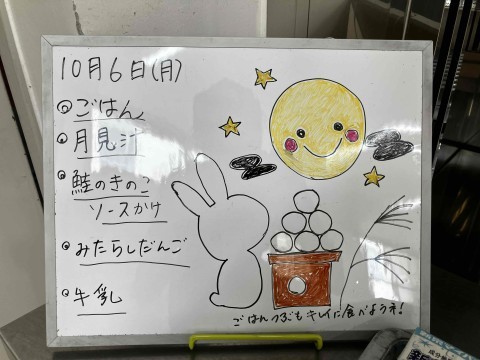 10月6日(月)
◎ごはん
◎月見汁
◎鮭のきのこ
ソースかけ
◎みたらしだんご
◎牛乳
ごはんつぶもキレイに食べようネ!